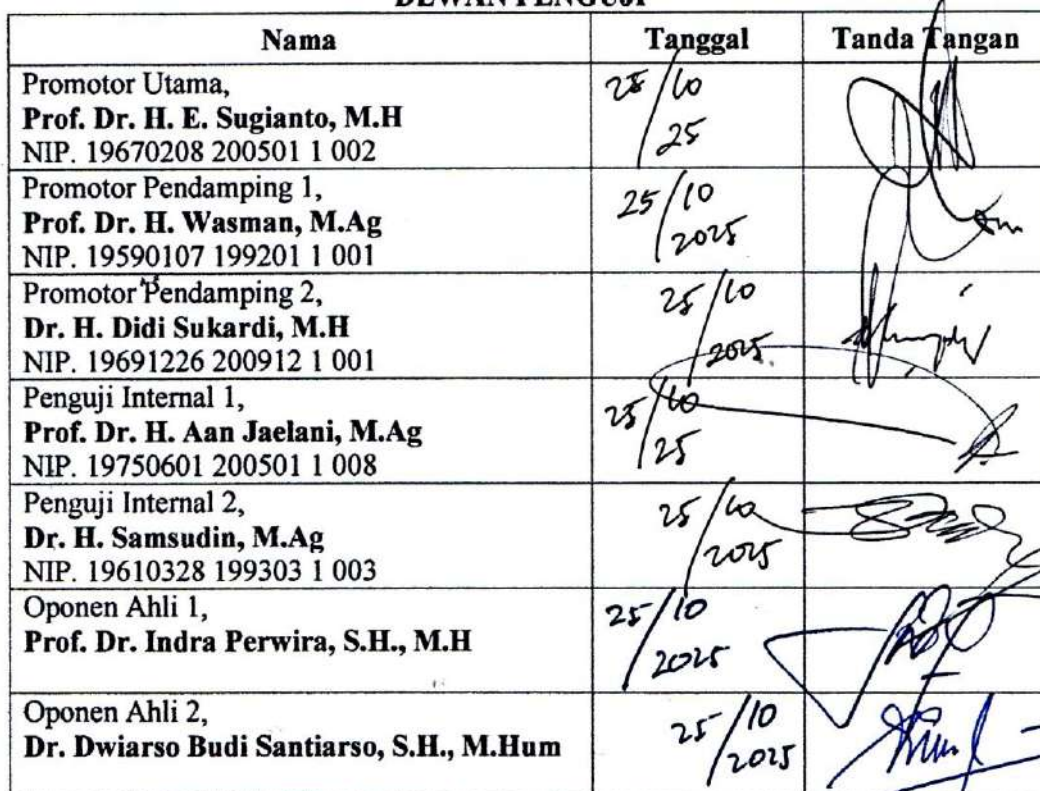 DEWAN PENGUJI
Nama Tanggal Tanda Tangan
Promotor Utama,
Prof. Dr. H. E. Sugianto, M.H
NIP. 19670208 200501 1 002
25/10
25
Promotor Pendamping 1,
Prof. Dr. H. Wasman, M.Ag
NIP. 19590107 199201 1 001
25/10
2025
Promotor Pendamping 2,
Dr. H. Didi Sukardi, M.H
NIP. 19691226 200912 1 001
25/10
2025
Penguji Internal 1,
Prof. Dr. H. Aan Jaelani, M.Ag
NIP. 19750601 200501 1 008
25/10
25
Penguji Internal 2,
Dr. H. Samsudin, M.Ag
NIP. 19610328 199303 1 003
25/10
2025
Oponen Ahli 1,
Prof. Dr. Indra Perwira, S.H., M.H
25/10
2025
Oponen Ahli 2,
Dr. Dwiarso Budi Santiarso, S.H., M.Hum
25/10
2025